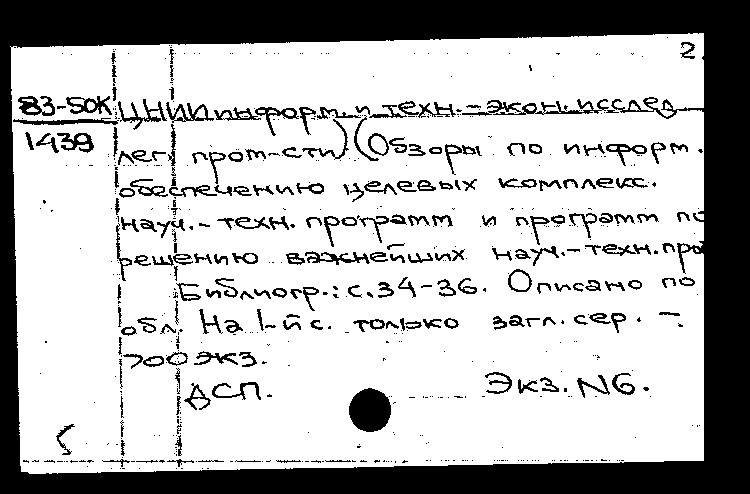 2.
83-50К ЦНИИинформ. и техн.-экон.исслед
1439
лег. пром-сти) (Обзоры по информ.
обеспечению целевых комплекс.
науч.-техн. программ и программ по
решению важнейших науч.-техн.про
Библиогр.: с.34-36. Описано по
обл. На 1-й с. только загл. сер. -
700экз.
ДСП. Экз. N6.